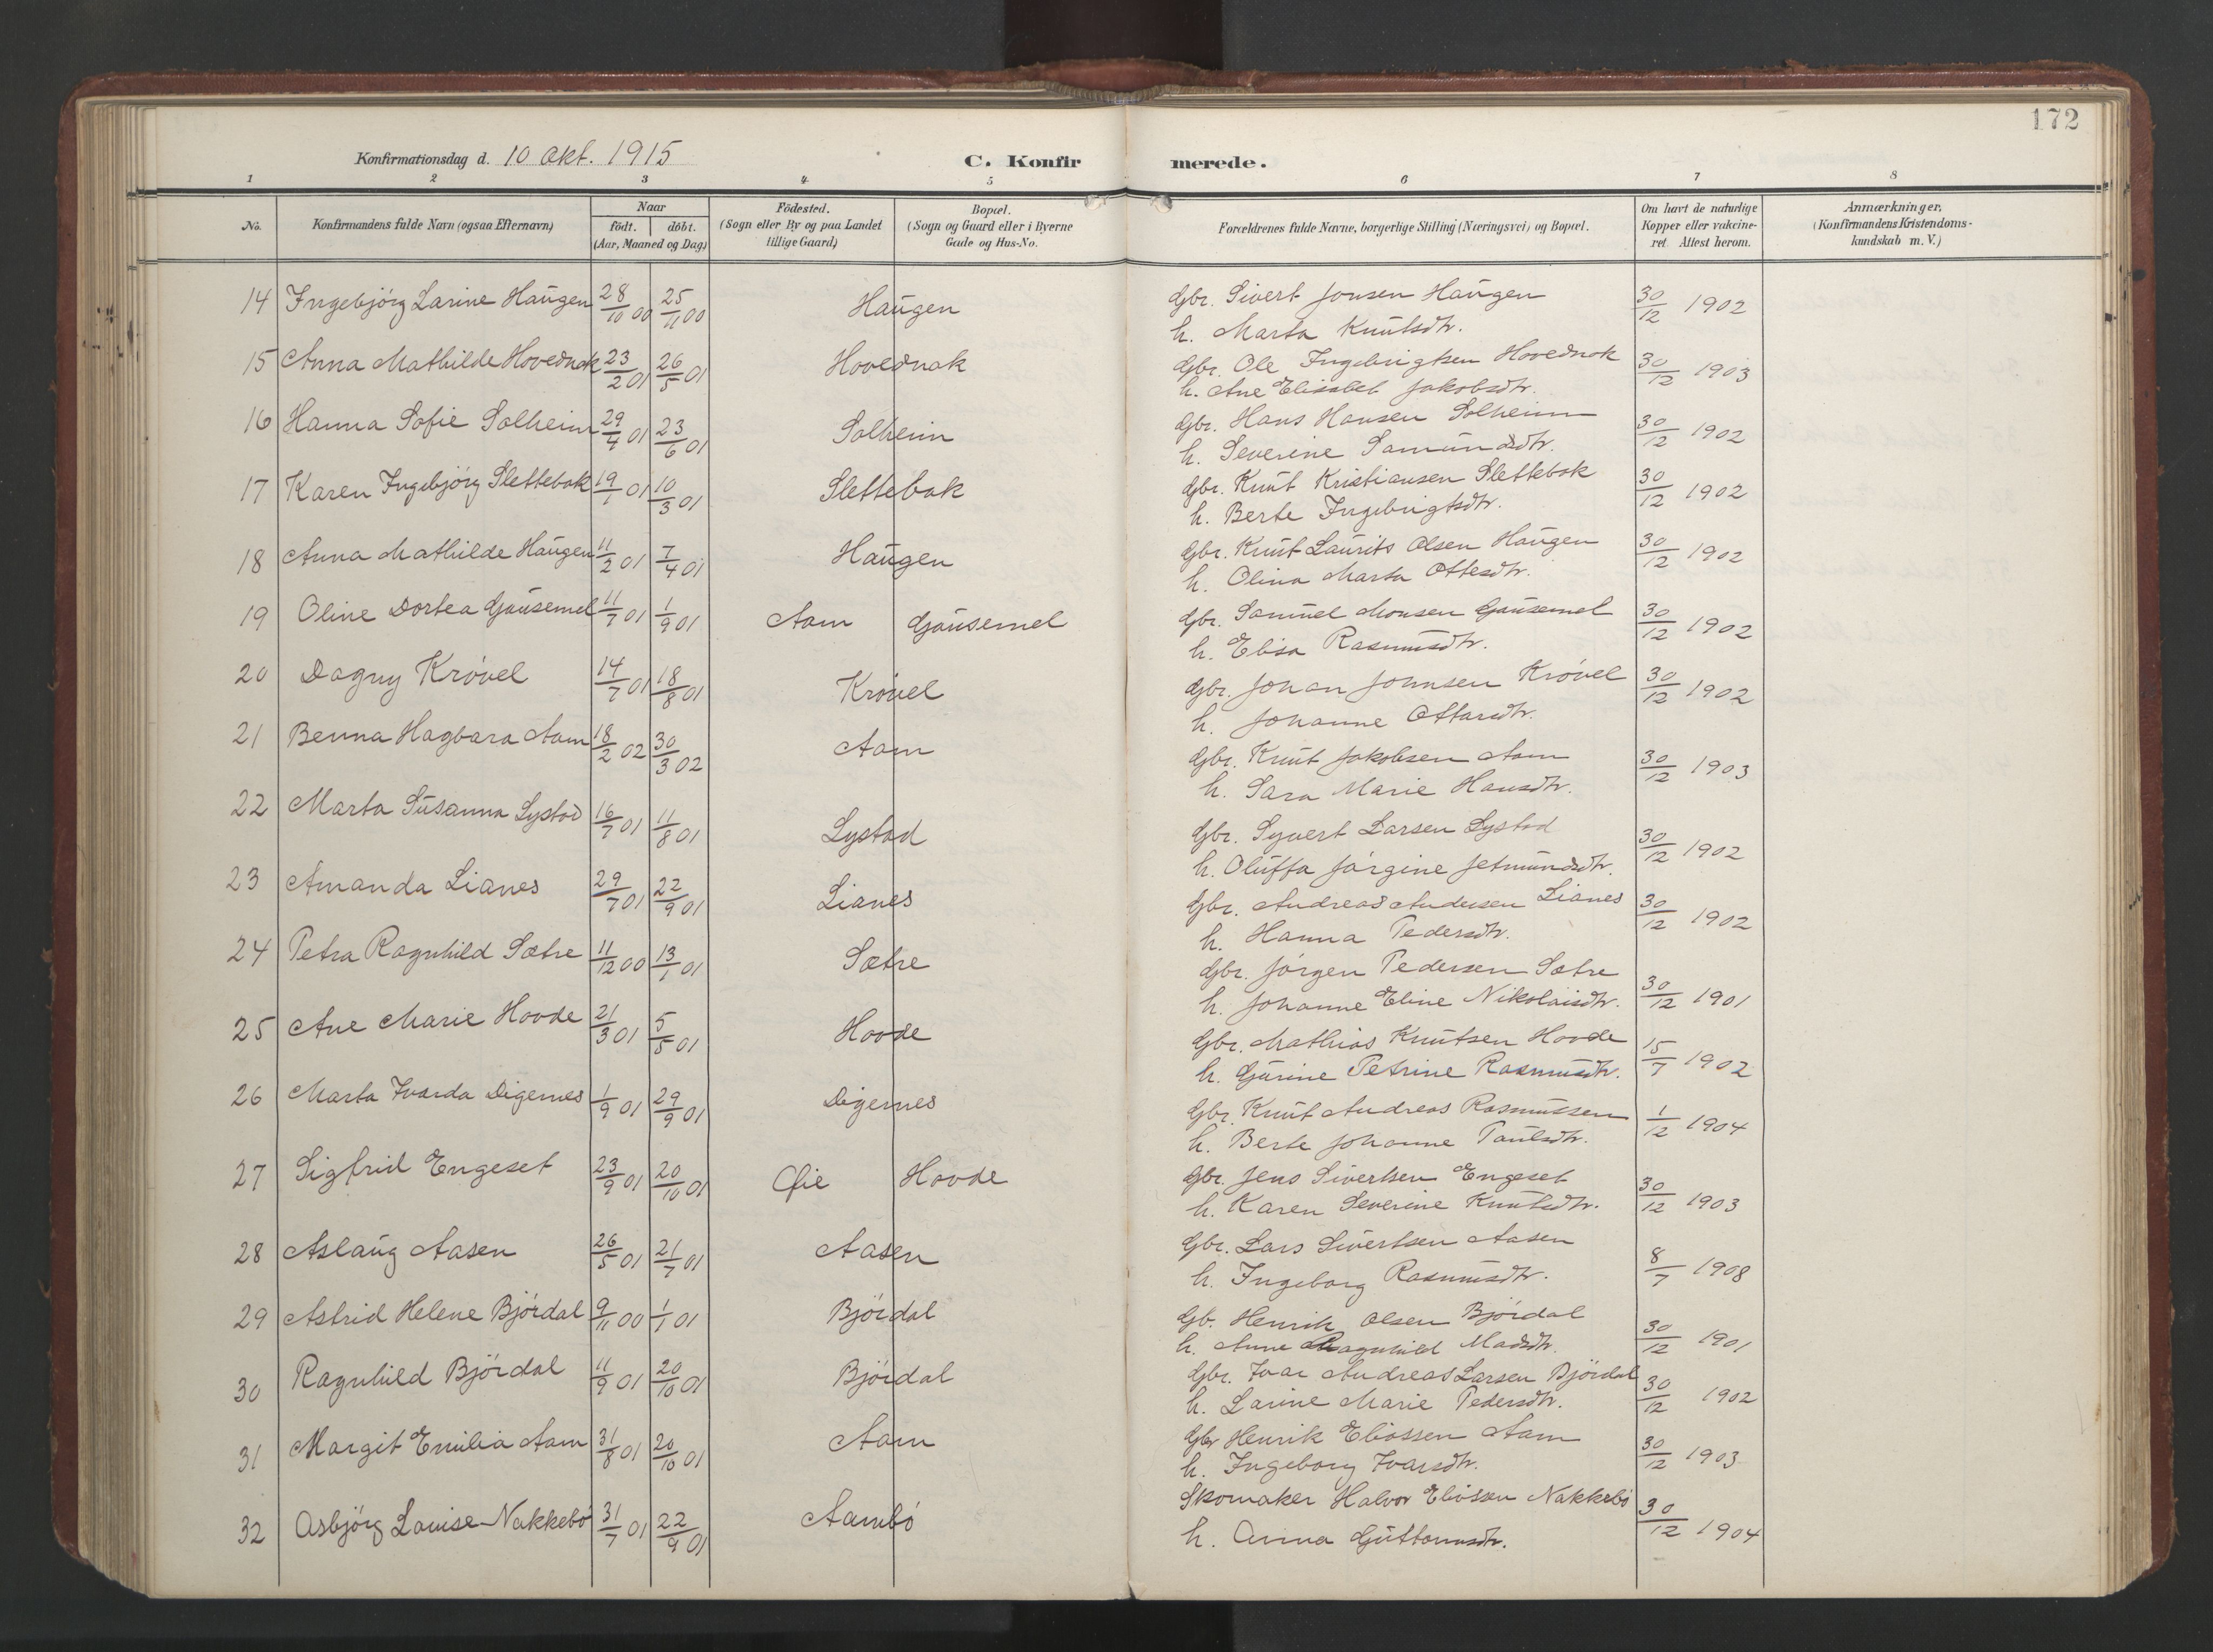 172
Konfirmationsdag d. 10 Okt. 1915
C. Konfirmerede.
1 2 3 4 5 6 7 8
No.
Konfirmandens fulde Navn (ogsaa Efternavn)
Naar
födt. döbt.
(Aar, Maaned og Dag)
Födested.
(Sogn eller By og paa Landet
tillige Gaard)
Bopæl.
(Sogn og Gaard eller i Byerne
Gade og Hus-No.
Forældrenes fulde Navne, borgerlige Stilling (Næringsvei) og Bopæl.
Om havt de naturlige
Kopper eller vakcine-
ret Attest herom.
Anmærkninger.
(Konfirmandens Kristendoms-
kundskab m. V.)
14 Ingebjörg Larine Haugen 28/10 00 25/11 00 Haugen Gbr. Sivert Jonsen Haugen 30/12 1902
h. Marta Knutsdtr.
15 Anna Mathilde Hovednak 23/2 01 26/5 01 Hovednak Gbr. Ole Ingebrigtsen Hovednak 30/12 1903
h. Ane Elisabet Jakobsdtr.
16 Hanna Sofie Solheim 29/4 01 23/6 01 Solheim Gbr. Hans Hansen Solheim 30/12 1902
h. Severine Samundsdtr.
17 Karen Ingebjörg Slettebak 19/1 01 10/3 01 Slettebak Gbr. Knut Kristiansen Slettebak 30/12 1902
h. Berte Ingebrigtsdtr.
18 Anna Mathilde Haugen 11/2 01 7/4 01 Haugen Gbr. Knut Laurits Olsen Haugen 30/12 1902
h. Olina Marta Ottesdtr.
19 Oline Dortea Gausemel 11/7 01 1/9 01 Aam Gausemel Gbr. Samuel Monsen Gausemel 30/12 1902
h. Elisa Rasmusdtr.
20 Dagny Krövel 14/7 01 18/8 01 Krövel Gbr. Johan Johnsen Krövel 30/12 1902
h. Johanne Ottarsdtr.
21 Benna Hagbara Aam 18/2 02 30/3 02 Aam Gbr. Knut Jakobsen Aam 30/12 1903
h. Sara Marie Hansdtr.
22 Marta Susanna Lystad 16/7 01 11/8 01 Lystad Gbr. Syvert Larsen Lystad 30/12 1902
h. Oluffa Jörgine Jetmundsdtr.
23 Amanda Lianes 29/7 01 22/9 01 Lianes Gbr. Andreas Andersen Lianes 30/12 1902
h. Hanna Pedersdtr.
24 Petra Ragnhild Sætre 11/12 00 13/1 01 Sætre Gbr. Jörgen Pedersen Sætre 30/12 1901
h. Johanne Eline Nikolaisdtr.
25 Ane Marie Hovde 21/3 01 5/5 01 Hovde Gbr. Mathias Knutsen Hovde 15/7 1902
h. Gurine Petrine Rasmusdtr.
26 Marta Ivarda Digernes 1/9 01 29/9 01 Digernes Gbr. Knut Andreas Rasmussen 1/12 1904
h. Berte Johanne Paulsdtr.
27 Sigfrid Engeset 23/9 01 20/10 01 Øie Hovde Gbr. Jens Sivertsen Engeset 30/12 1903
h. Karen Severine Knutsdtr.
28 Aslaug Aasen 26/5 01 21/7 01 Aasen Gbr. Lars Sivertsen Aasen 8/7 1908
h. Ingeborg Rasmusdtr.
29 Astrid Helene Björdal 9/11 00 1/1 01 Björdal Gb. Henrik Olsen Björdal 30/12 1901
h. Anne Ragnhild Madsdtr.
30 Ragnhild Björdal 11/9 01 20/10 01 Björdal Gbr. Ivar Andreas Larsen Björdal 30/12 1902
h. Larine Marie Pedersdtr.
31 Margit Emilia Aam 31/8 01 20/10 01 Aam Gbr Henrik Eliassen Aam 30/12 1903
h. Ingeborg Ivarsdtr.
32 Asbjörg Louise Nakkebö 31/7 01 22/9 01 Aambö Skomaker Halvor Eliasen Nakkebö 30/12 1904
h. Anna Guttormsdtr.